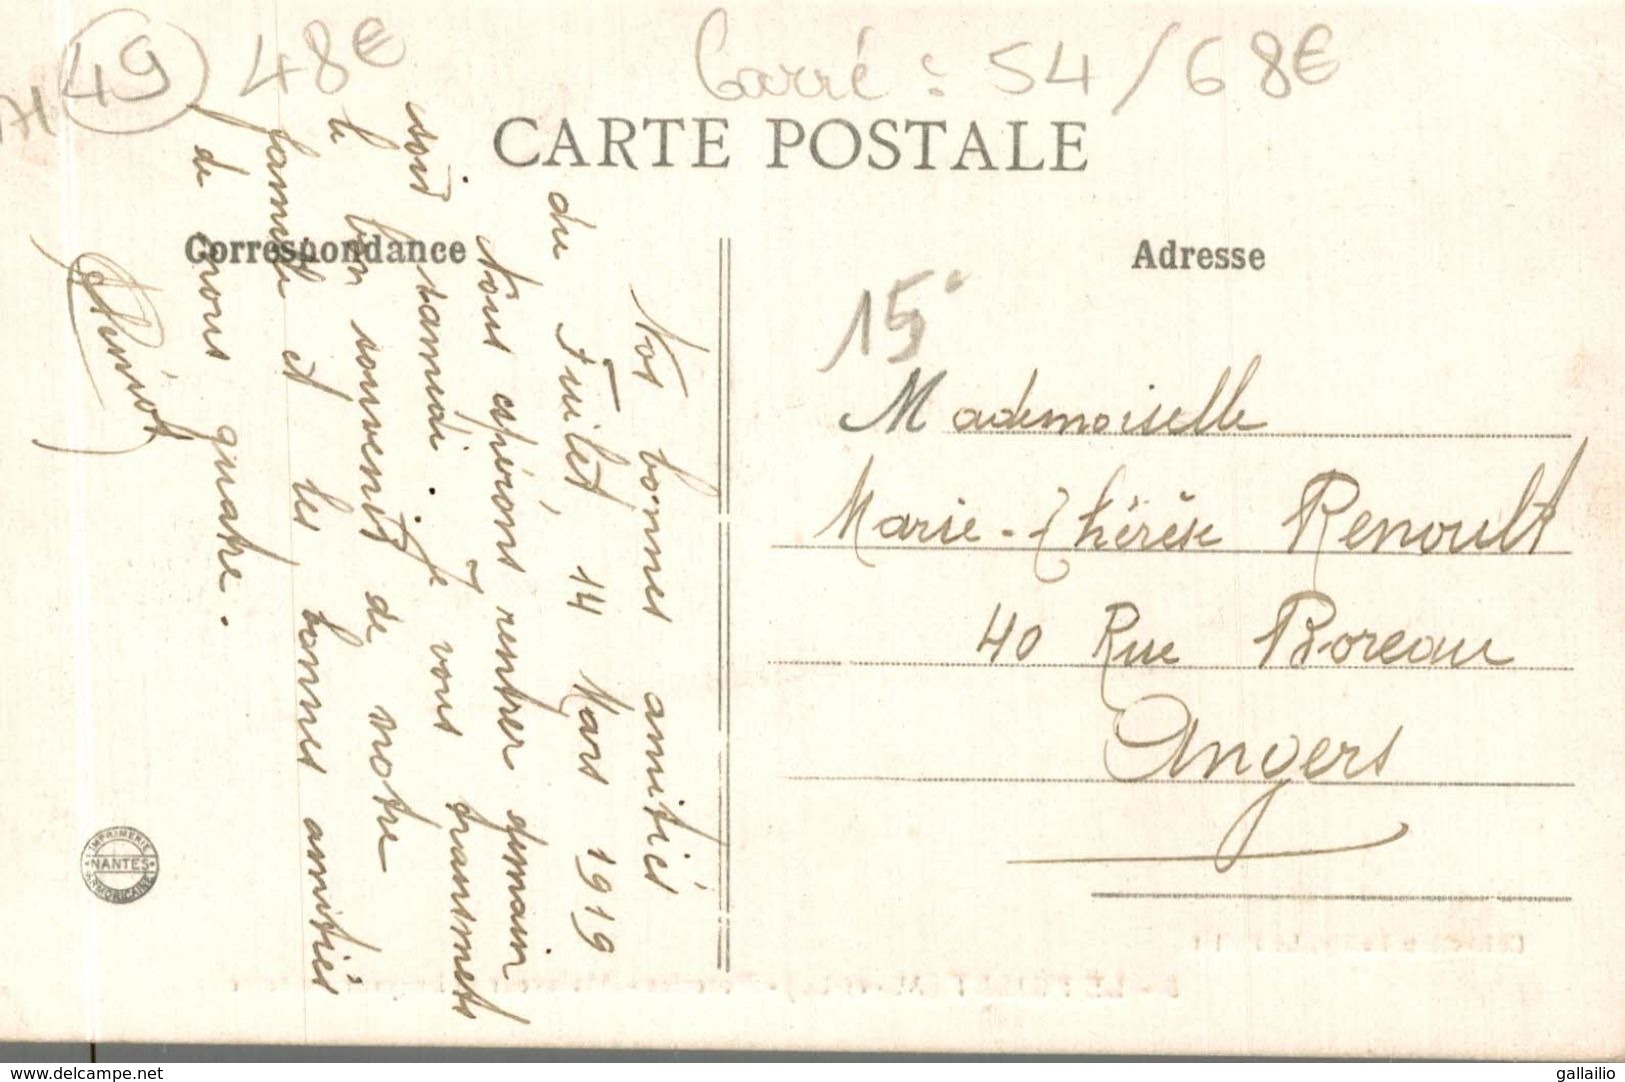 A1 49 48€ Carré : 54 / 68€
CARTE POSTALE
Correspondance
Adresse
15
Nos bonnes amitiés
du Fuilet, 14 Mars 1919
Nous espérons rentrer demain
soir samedi. Je vous transmets
le bon souvenir de notre
famille et les bonnes amitiés
de nous quatre.
Mademoiselle
Marie-Thérèse Renoult
40 Rue Boreau
Angers
IMPRIMERIE
NANTES
ARMORICAINE
www.delcampe.net
gallailio